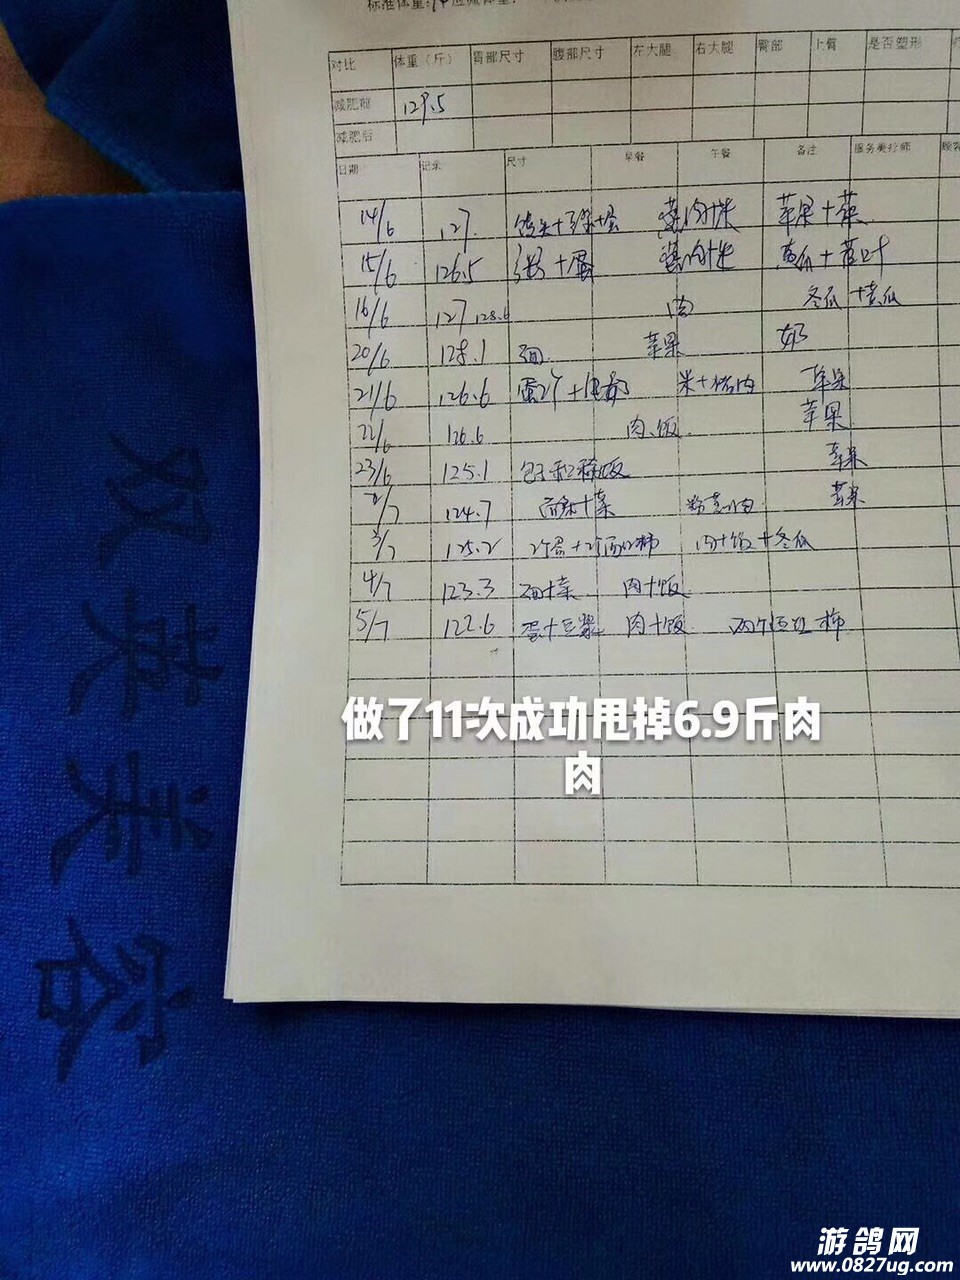 标准体重:
对比 体重（斤） 胃部尺寸 腹部尺寸 左大腿 右大腿 臀部 上臂 是否塑形
减肥前 129.5
减肥后
日期 记录 尺寸 早餐 午餐 备注 服务美疗师 顾客
14/6 127. 苹果+菜
15/6 126.5 +蛋 黄瓜+
16/6 127 128.6 肉 冬瓜+黄瓜
20/6 128.1 面. 苹果 奶
21/6 126.6 蛋2个+ 米+ 肉 苹果
22/6 126.6 肉.饭 苹果
23/6 125.1 包子和稀饭 苹果
2/7 124.7 +菜 肉 苹果
3/7 125.2 2个蛋+2个西红柿 肉+饭+冬瓜
4/7 123.3 面+菜 肉+饭
5/7 122.6 蛋+豆浆 肉+饭 两个西红柿
做了11次成功甩掉6.9斤肉
肉
双英美容
游鸽网
www.0827ug.com